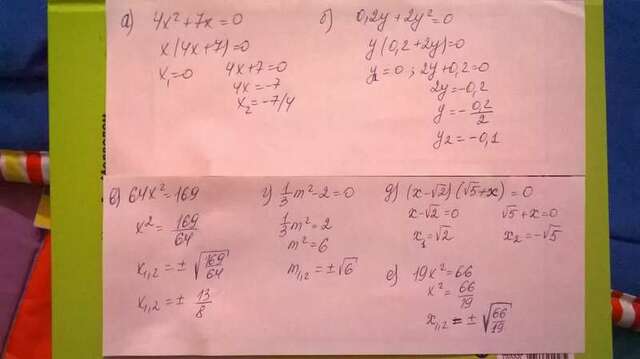 а) 4x²+7x=0
x(4x+7)=0
x₁=0 4x+7=0
4x=-7
x₂=-7/4
б) 0,2y+2y²=0
y(0,2+2y)=0
y₁=0; 2y+0,2=0
2y=-0,2
y=-0,2/2
y₂=-0,1
в) 64x²=169
x²=169/64
x₁,₂=±√169/64
x₁,₂=±13/8
г) 1/3m²-2=0
1/3m²=2
m²=6
m₁,₂=±√6
д) (x-√2)(√5+x)=0
x-√2=0 √5+x=0
x₁=√2 x₂=-√5
е) 19x²=66
x²=66/19
x₁,₂=±√66/19